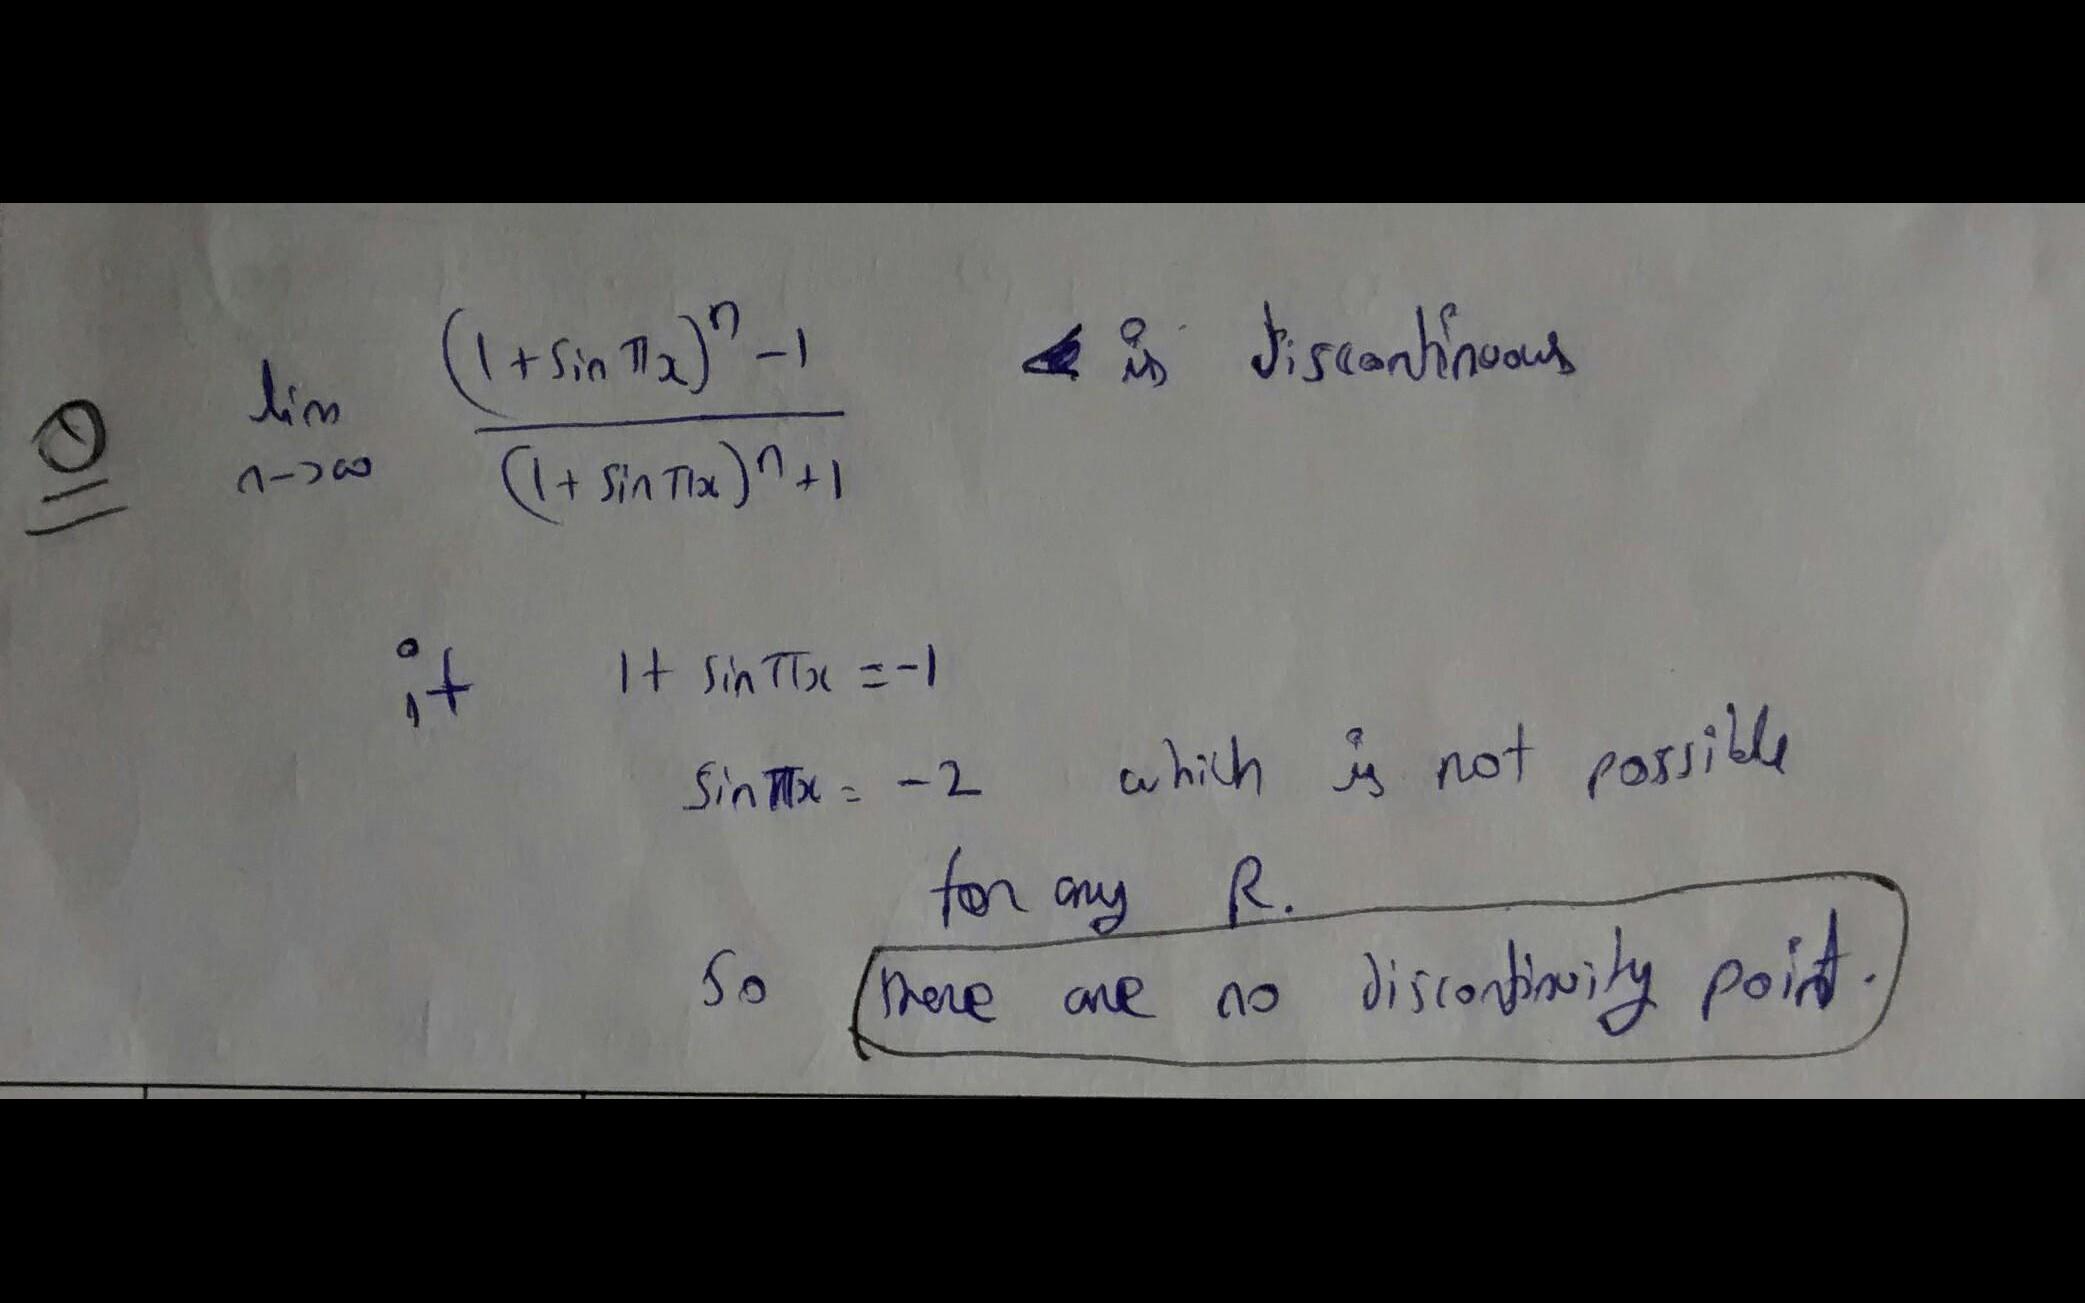 ① lim n->∞ ((1+sin πx)^n - 1) / ((1+sin πx)^n + 1) is discontinuous
if 1+ sin πx = -1
sin πx = -2 which is not possible
for any R.
So there are no discontinuity point.